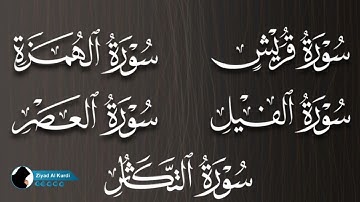 سُورَةُ قُرَيْشٍ سُورَةُ الهُمَزَةِ
سُورَةُ الفِيلِ سُورَةُ العَصْرِ
سُورَةُ التَّكَاثُرِ
Ziyad Al Kurdi